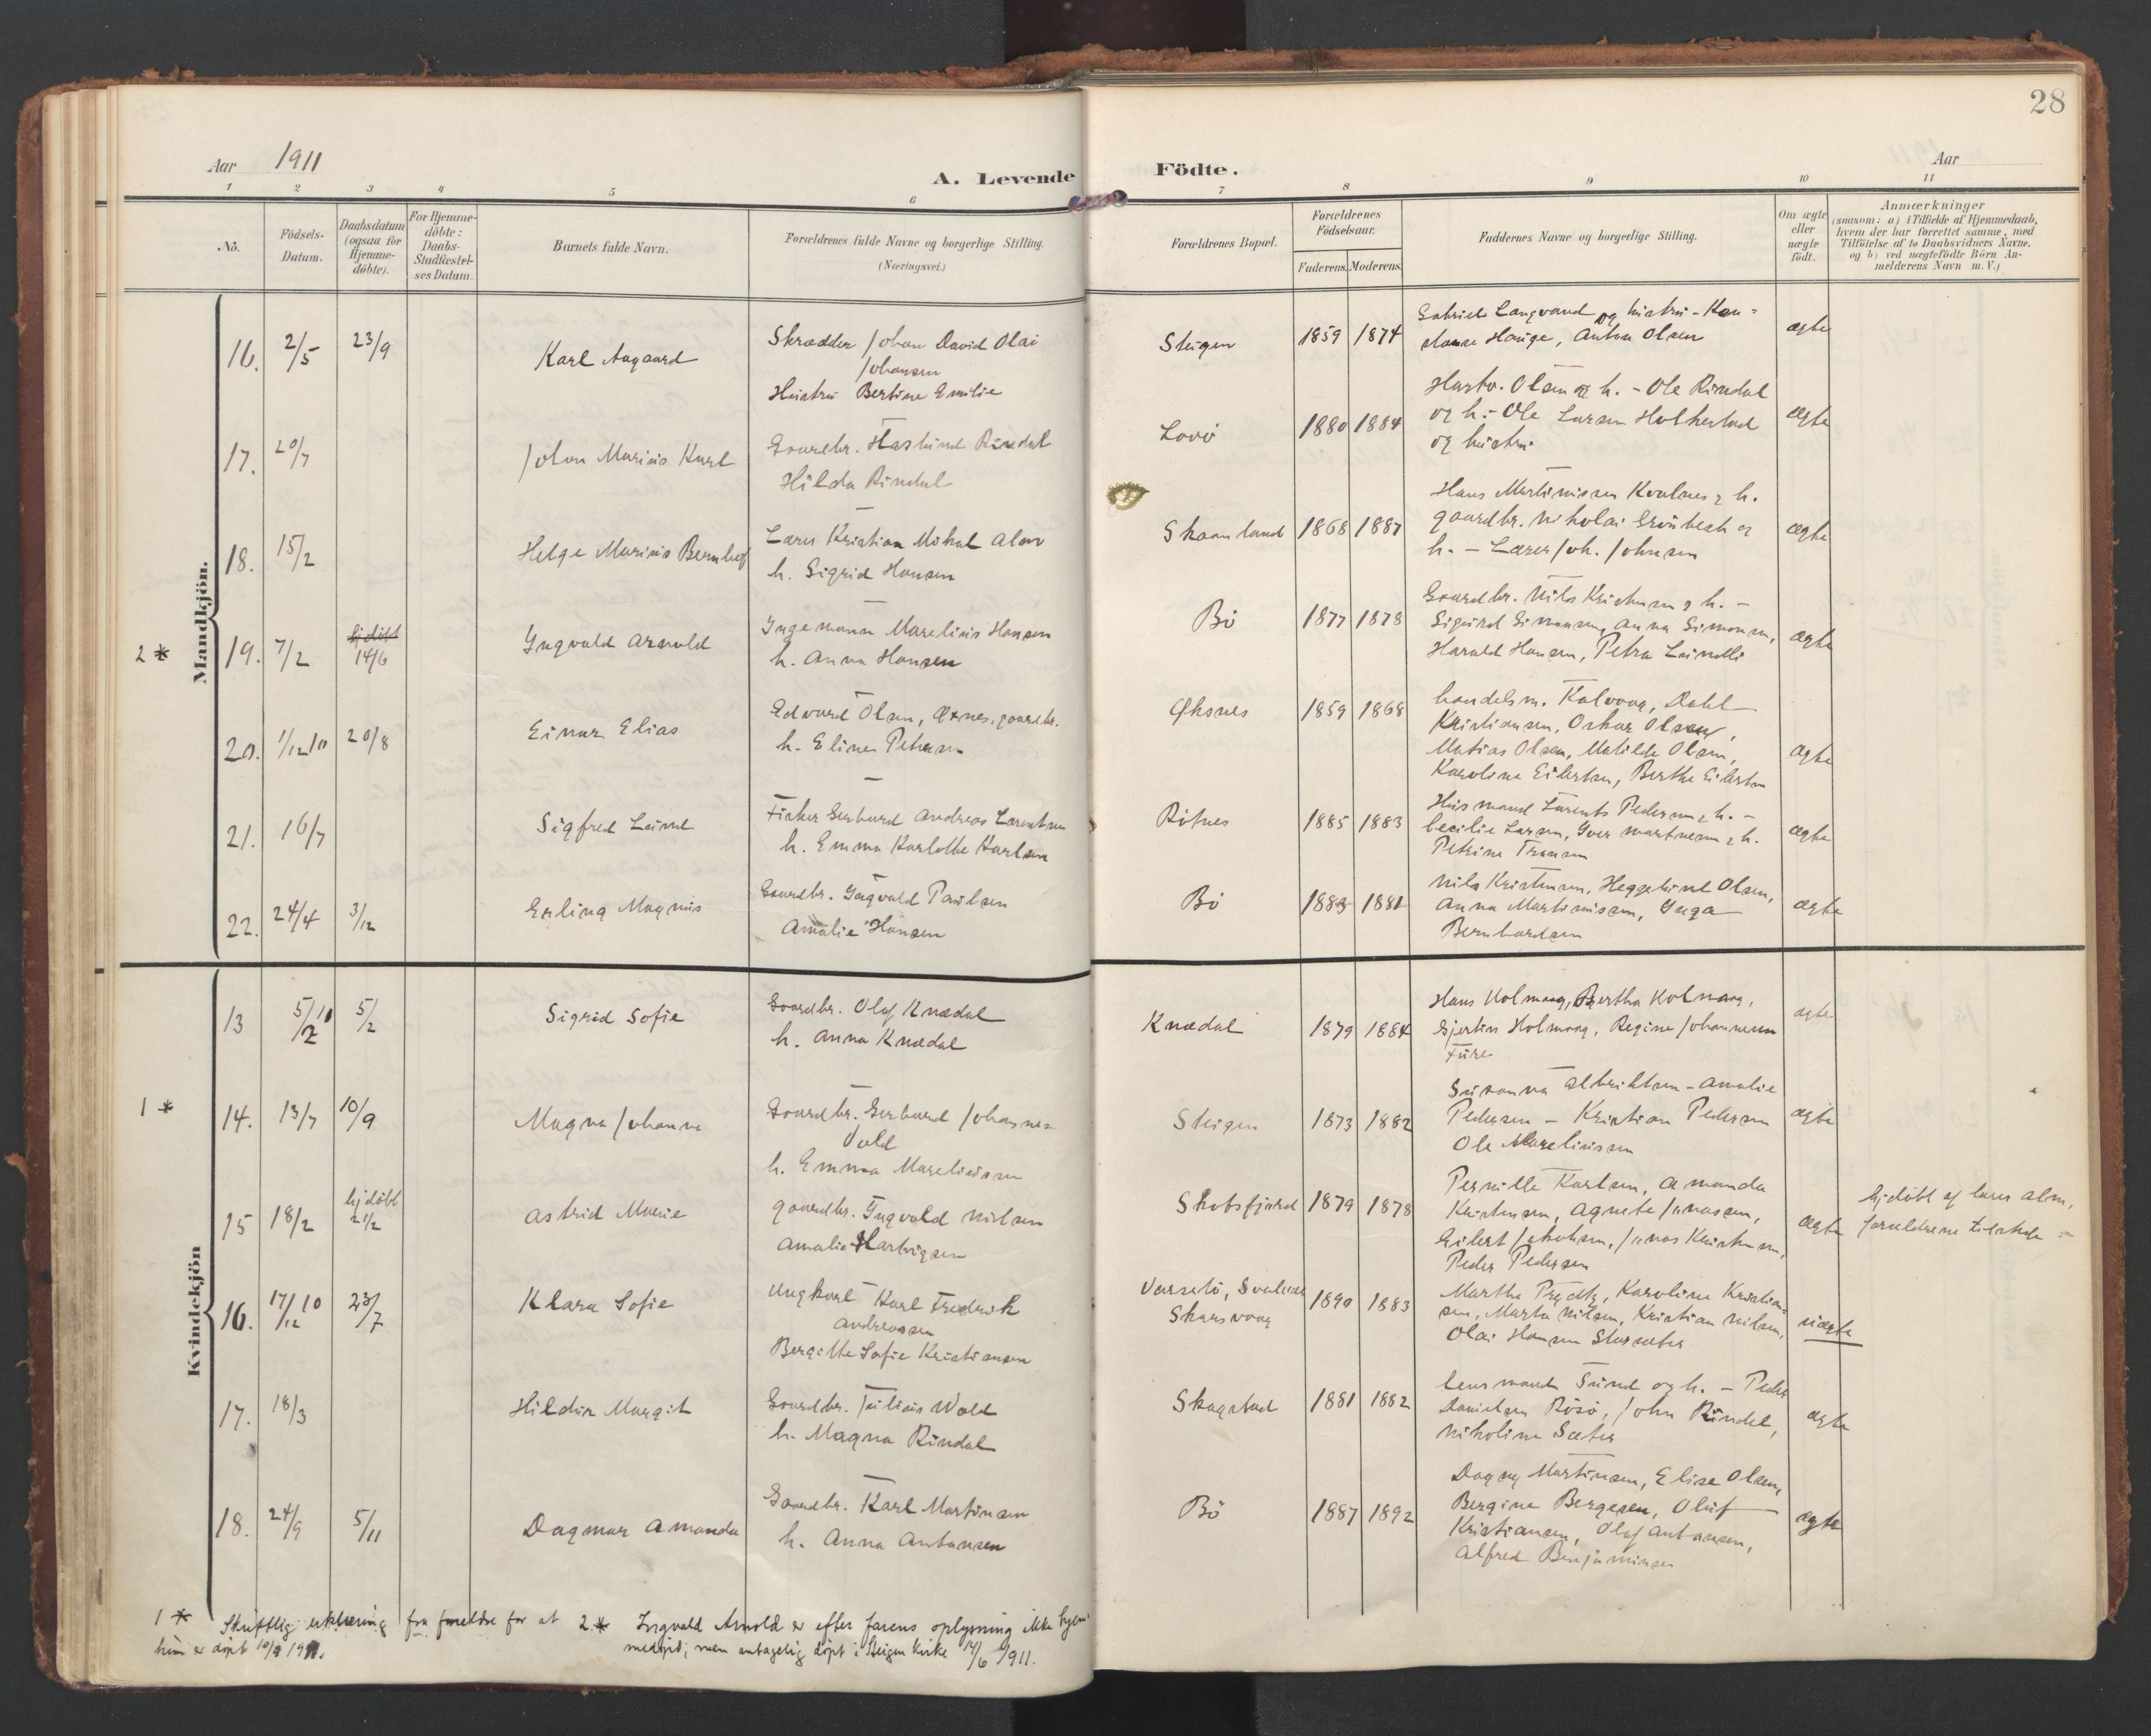 28
Aar 1911
A. Levende Födte.
Aar
1 2 3 4 5 6 7 8 9 10 11
No.
Födsels-Datum.
Daabsdatum (ogsaa for Hjemme-döbte).
For Hjemme-döbte: Daabs-Stadfæstel-ses Datum.
Barnets fulde Navn.
Forældrenes fulde Navne og borgerlige Stilling. (Næringsvei.)
Forældrenes Bopæl.
Forældrenes Födselsaar.
Faderens. Moderens.
Faddernes Navne og borgerlige Stilling.
Om ægte eller uægte födt.
Anmærkninger
(saasom: a) i Tilfælde af Hjemmedaab,
hvem der har forrettet samme, med
Tilföielse af to Daabsvidners Navne.
og b) ved uægtefödte Börn An-
melderens Navn m. V.)
Mandkjön.
16. 2/5 23/9 Karl Aagaard
Skrædder Johan David Olai
Johansen
Hustru Bertine Emilie
Steigen 1859 1874
Gabriel Langvand og hustru - Kon-
stanse Hauge, Anton Olsen
ægte
17. 20/7 Johan Marius Karl
Gaardbr. Haslund Rindal
Hilda Rindal
Lovö 1880 1884
Hartv. Olsen og h. - Ole Rindal
og h. - Ole Larsen Holkestad
og hustru
ægte
18. 15/2 Helge Marius Bernhof
Lærer Kristian Mikal Alav
h. Sigrid Hansen
Skaanland 1868 1887
Hans Martinussen Kvalnes & h.
gaardbr. Nikolai Grönbech og
h. - Lærer Joh. Johnsen
ægte
2 * 19. 7/2 hjdöbt 14/6 Ingvald Arnold
Ingemann Marelius Hansen
h. Anna Hansen
Bö 1877 1878
Gaardbr. Nils Kristensen & h. -
Sigurd Simonsen, Anna Simonsen,
Harald Hansen, Petra
ægte
20. 1/12 10 20/8 Einar Elias
Edvard Olsen, gaardbr.
h. Eline Petersen
Öksnes 1859 1868
handelsm. Kalvaag, Dahl
Kristiansen, Oskar Olsen,
Matias Olsen, Matilde Olsen,
Karoline Eilertsen, Berthe Eilertsen
ægte
21. 16/7 Sigfred
Fisker Gerhard Andreas Larentsen
h. Emma Karlotte Karlsen
Rötnes 1885 1883
Husmand Larents Pedersen & h. -
Cecilie Larsen, Iver Martnesen & h.
Petrine
ægte
22. 24/4 3/12 Erling Magnus
Gaardbr. Ingvald Paulsen
Amalie Hansen
Bö 1883 1881
Nils Kristensen, Heggelund Olsen,
Anna Martinussen, Inga
Bernhardsen
ægte
Kvindekjön
13 5/12 10 5/2 Sigrid Sofie
Gaardbr. Olaf Knædal
h. Anna Knædal
Knædal 1879 1884
Hans Holmaag, Bertha Holmaag,
Gjertine Holmaag, Regine Johannesen
Fure
ægte
1 * 14. 13/7 10/9 Magna Johanna
Gaardbr. Gerhard Johannes
Vold
h. Emma Mareliussen
Steigen 1873 1882
Susanna Albriktsen - Amalie
Pedersen - Kristian Pedersen
Ole Mareliussen
ægte
15 18/2 hjdöbt 21/2 Astrid Marie
gaardbr. Ingvald Nilsen
Amalie Hartvigsen
Skotsfjord 1879 1878
Pernille Karlsen, Amanda
Kristensen, Agnete Jonassen,
Eilert Jakobsen, Jonas Kristensen,
Peder Pedersen
ægte
hjdöbt af lærer Alm,
forældrene tilstede
16. 17/12 10 23/7 Klara Sofie
Ungkarl Karl Fredrik
Andreassen
Bergitte Sofie Kristiansen
Skarsvaag 1890 1883
Martha Prydtz, Karoline Kristian-
sen, Marta Nilsen, Kristian Nilsen,
Olai Hansen
uægte
17. 18/3 Hildur Margit
Gaardbr. Julius Wold
h. Magna Rindal
Skagstad 1881 1882
Lensmand Sund og h. - Peder
Danielsen Rösö, John Rindal,
Nikoline Sæter
ægte
18. 24/9 5/11 Dagmar Amanda
Gaardbr. Karl Martinsen
h. Anna Antonsen
Bö 1887 1892
Dagny Martinsen, Elise Olsen,
Bergine Bergesen, Oluf
Kristiansen, Olaf Antonsen,
Alfred Benjaminsen
ægte
1 * Skriftlig erklæring fra forældre for at
hun er döpt 10/9 1911.
2. * Ingvald Arnold er efter farens oplysning ikke hjem-
medöpt; men antagelig döpt i Steigen kirke 14/6 1911.